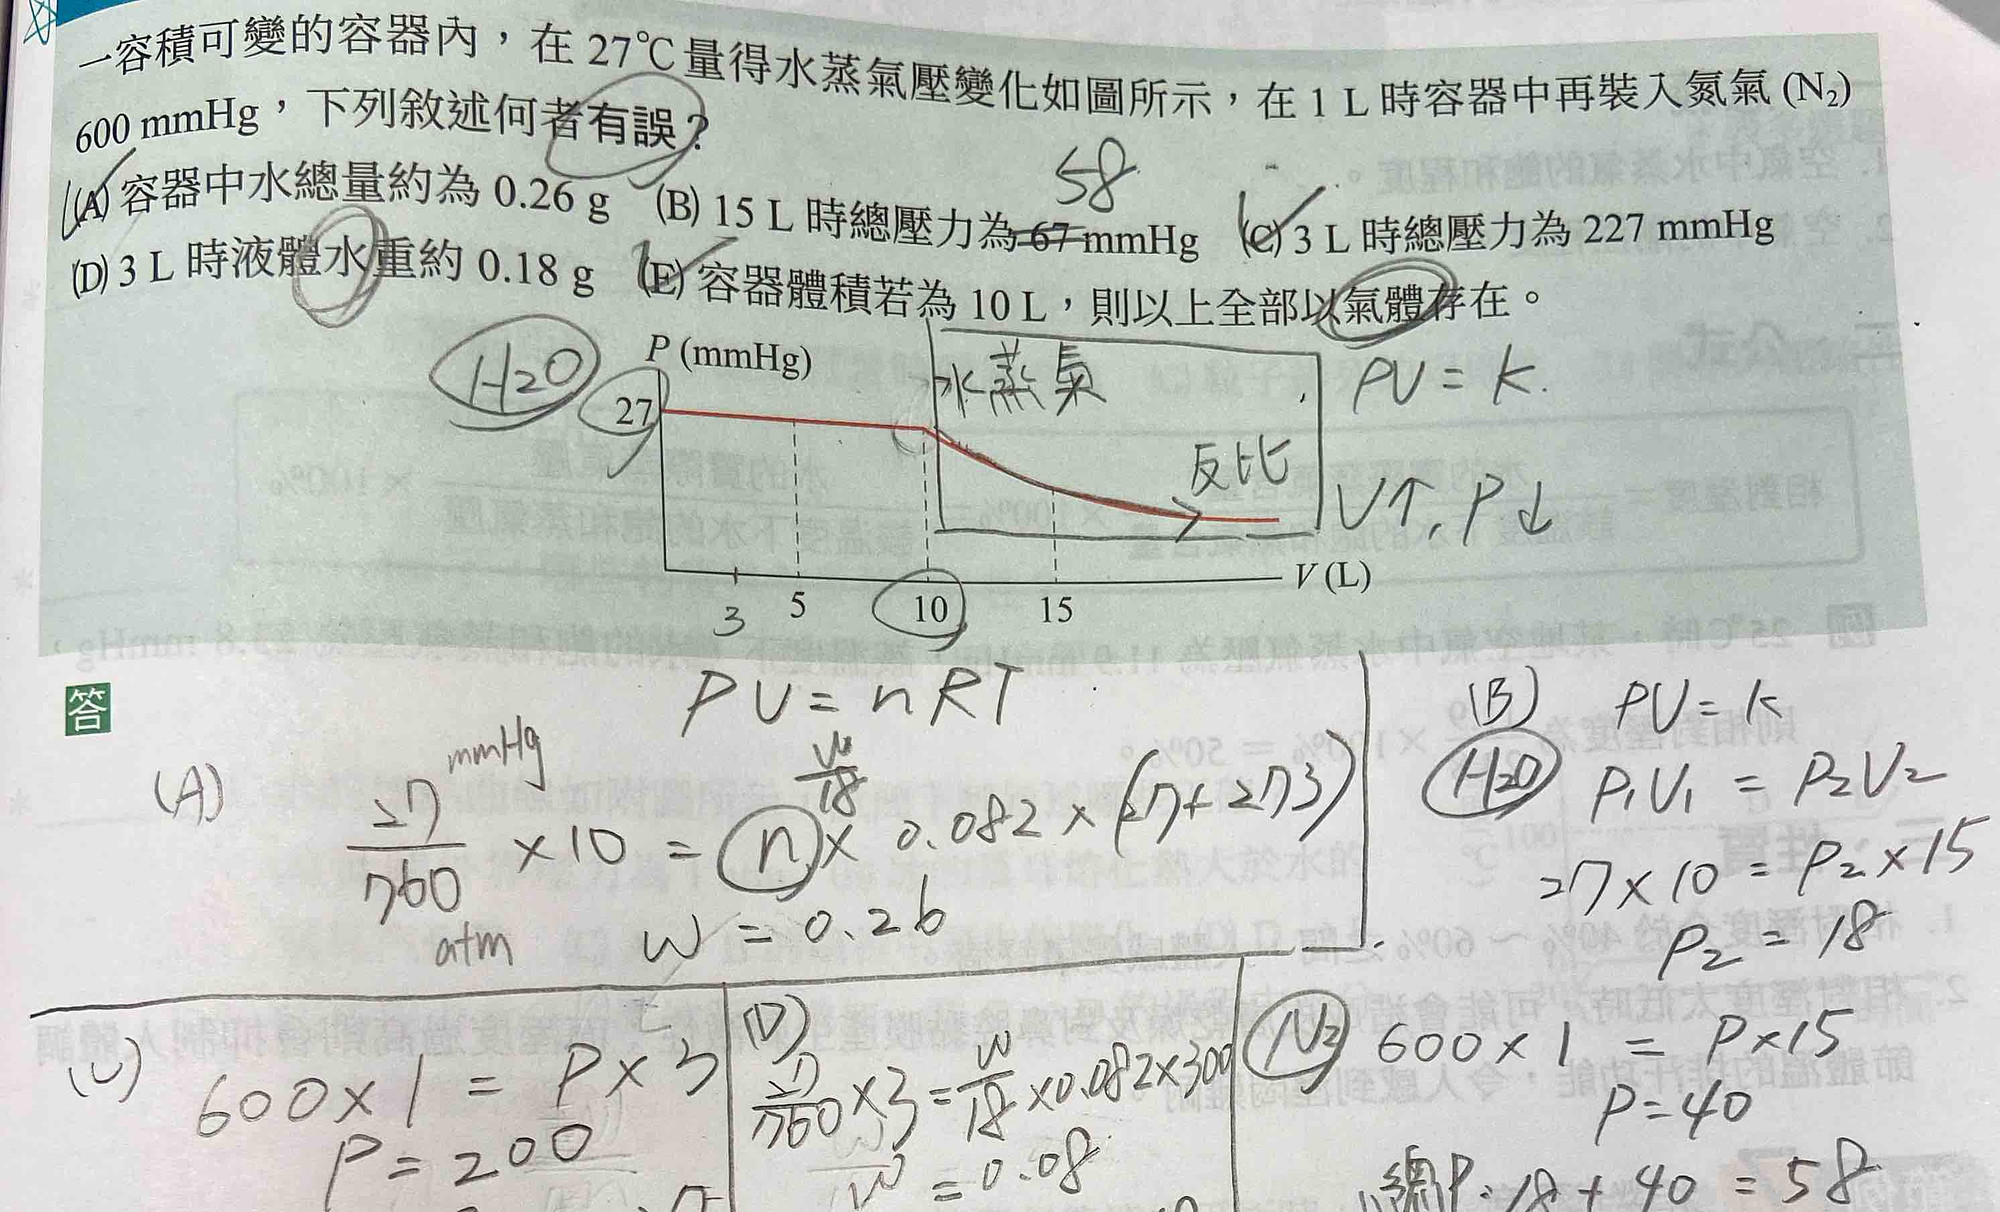 一容積可變的容器內，在 27℃量得水蒸氣壓變化如圖所示，在 1 L 時容器中再裝入氮氣 (N₂)
600 mmHg，下列敘述何者有誤？
58
(A) 容器中水總量約為 0.26 g (B) 15 L 時總壓力為 67 mmHg (C) 3 L 時總壓力為 227 mmHg
(D) 3 L 時液體水重約 0.18 g (E) 容器體積若為 10 L，則以上全部以氣體存在。
H₂O P (mmHg) 水蒸氣 PV = K.
27
反比 V↑, P↓
V (L)
3 5 10 15
答 PV = nRT
(A) 27 mmHg / 760 atm × 10 = n × 0.082 × (27+273)
W/18
W = 0.26
(B) PV = K
H₂O P₁V₁ = P₂V₂
27 × 10 = P₂ × 15
P₂ = 18
N₂ 600 × 1 = P × 15
P = 40
總P = 18 + 40 = 58
(C) 600 × 1 = P × 3
P = 200
(D)
27/760 × 3 = W/18 × 0.082 × 300
W = 0.08